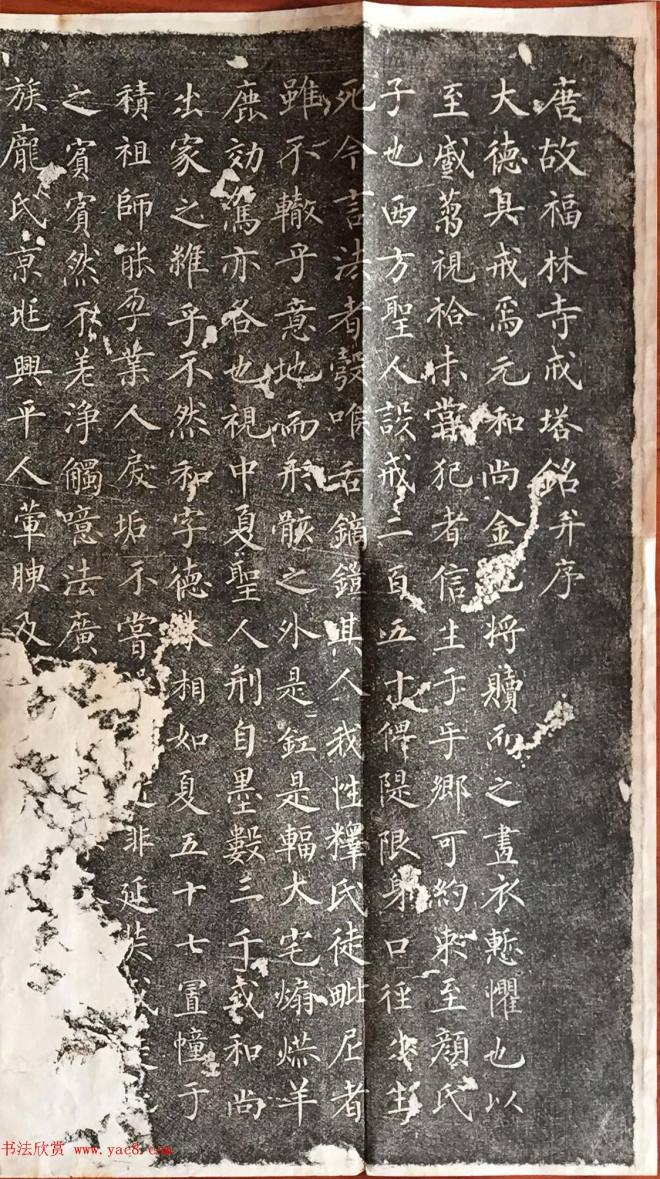 唐故福林寺戒塔銘并序
大德具戒焉元和尚金 將贖而之畫衣慙懼也以
至盛蒭視袷未嘗犯者信生于乎鄉可約束至顔氏
子也西方聖人設戒二百五十俾隄限身口徑 生
死今言法者 喉舌鏑鎧其人我性釋氏徒毗尼者
雖不轍乎意地而形骸之外是釭是輻大宅煽 羊
鹿効駕亦各也視中夏聖人刑自墨數三千或和尚
出家之雄乎不然和字德 相如夏五十七置幢于
積祖師能孕業人 垢不嘗 非延
之賓賓然不 净觸噫法廣
族龐氏京 興平人葷腴及
书法欣赏 www.yac8.com